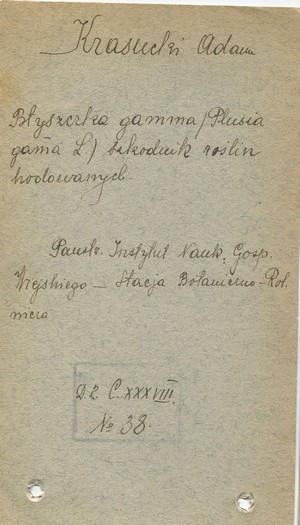 Krasucki Adam
Błyszczka gamma / Plusia
gama L / szkodnik roślin
hodowanych.
Państw. Instytut Nauk. Gosp.
Wiejskiego — Stacja Botaniczno-Rol
nicza
D.2. C. XXXVIII.
№ 38.